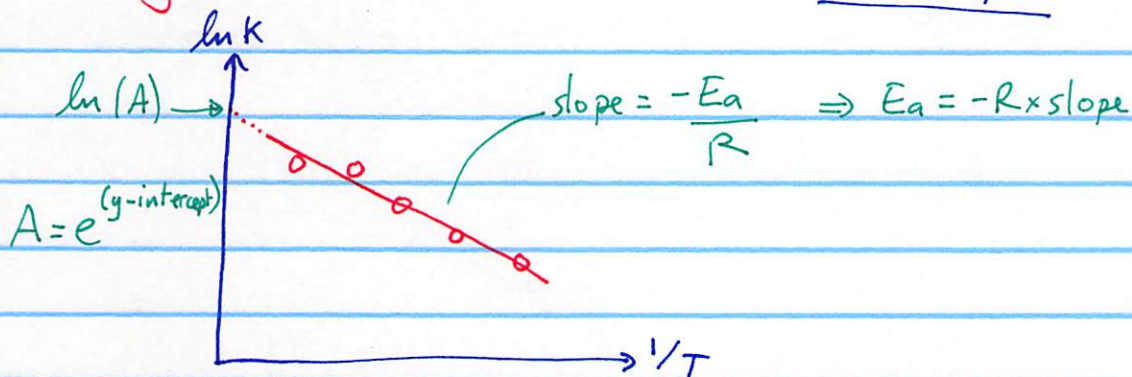 ln K
ln (A)
slope = -Ea / R ⇒ Ea = -R x slope
A = e^(y-intercept)
1/T